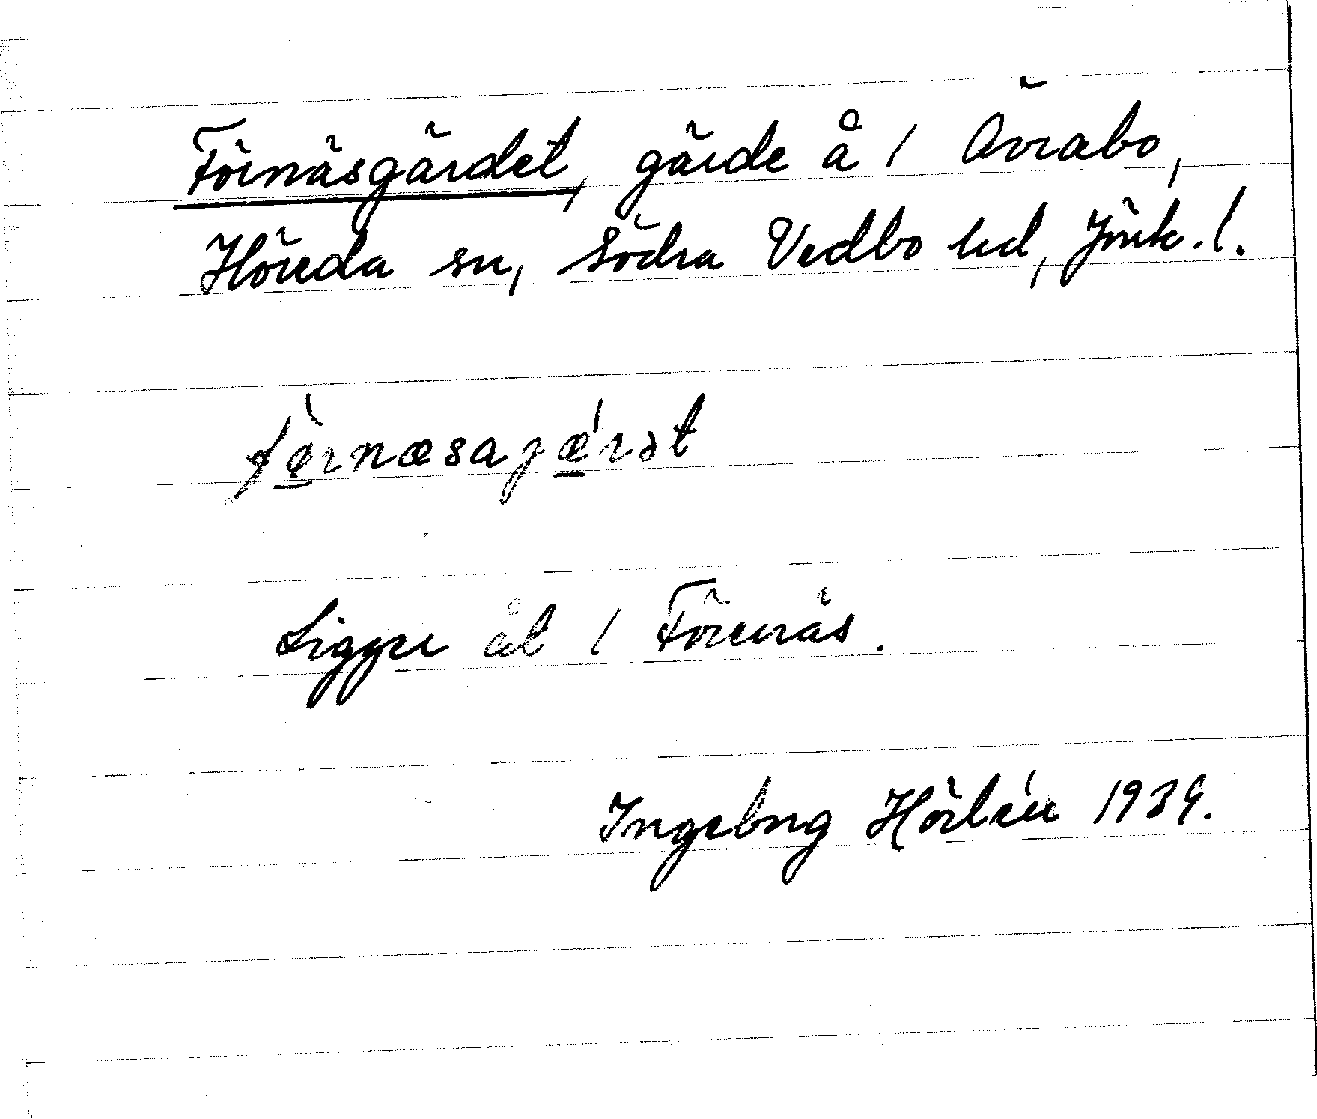 Förnäsgärdet, gärde å 1 Övrabo,
Höreda sn, Södra Vedbo hd, Jönk. l.
fǿrnæsajǽrət
Ligger ål 1 Förenäs.
Ingeborg Hörlén 1939.